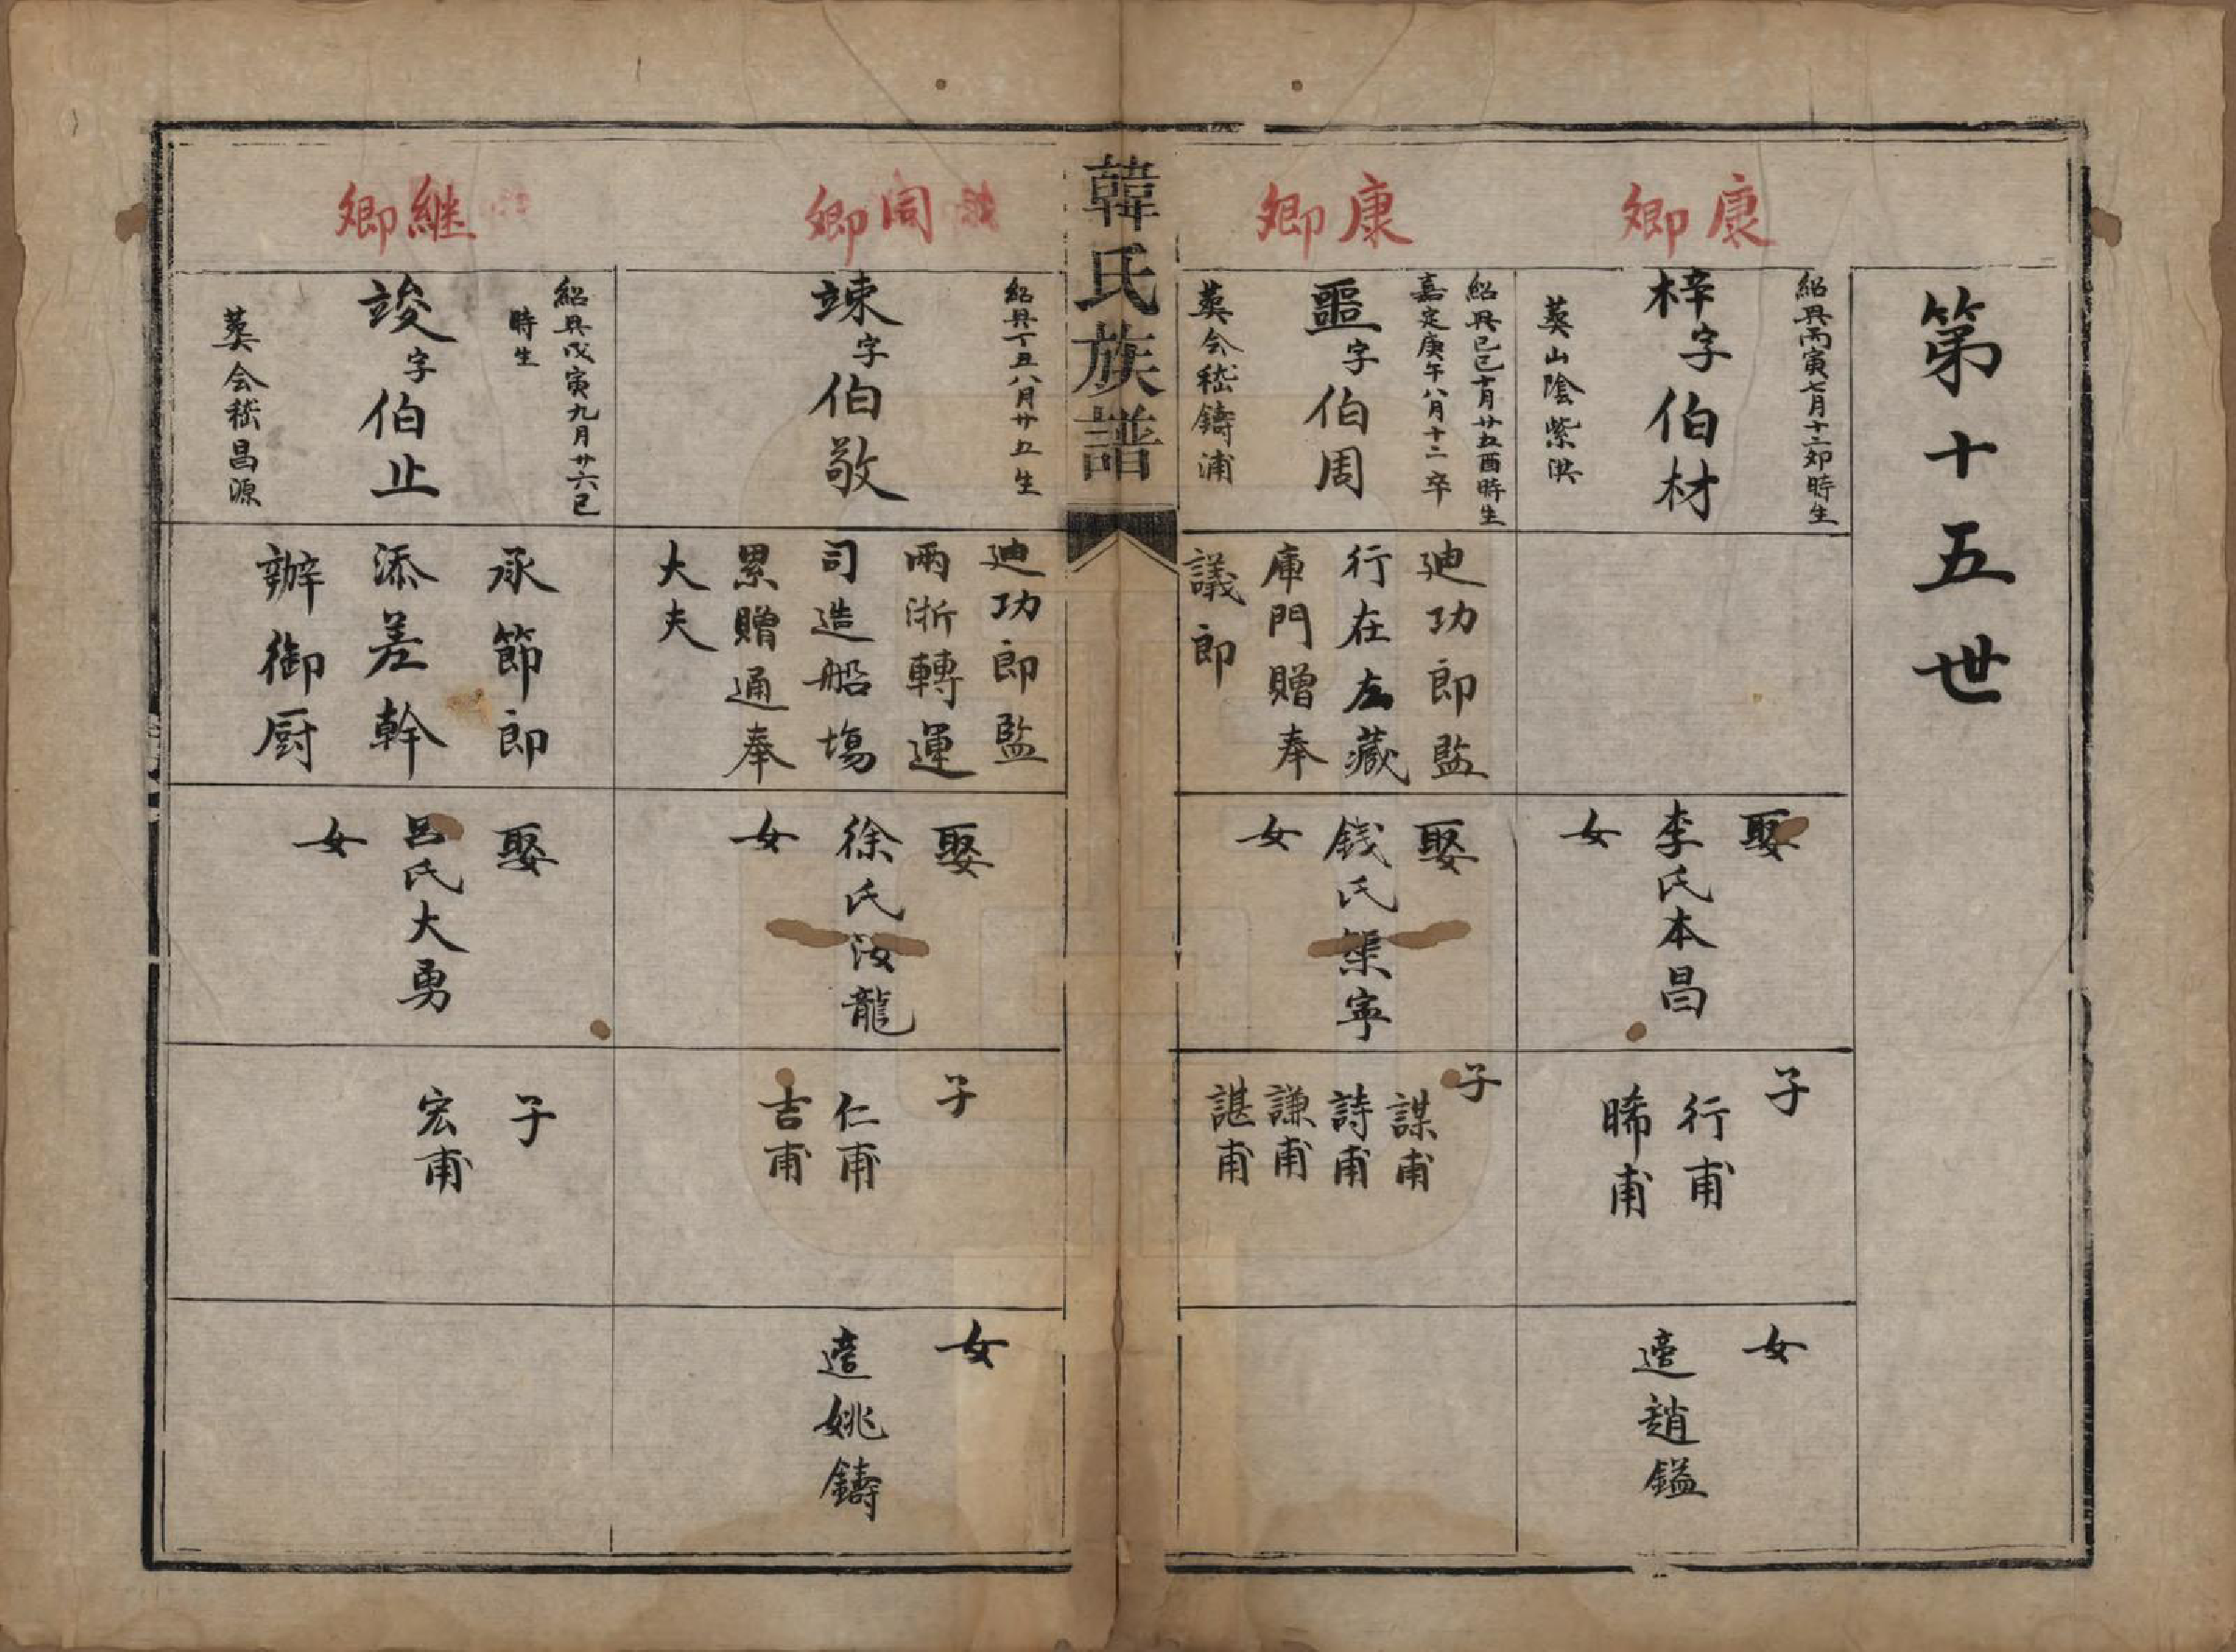 第十五世
康卿
紹興丙寅七月十二夘時生
梓字伯材
葬山陰紫洪
娶
李氏本昌
女
子
行甫
晞甫
女
適趙鎰
康卿
紹興己巳十月廿五酉時生
嘉定庚午八月十二卒
噩字伯周
葬会嵇鑄浦
廸功郎監
行在左藏
庫門贈奉
議郎
娶
錢氏榘寧
女
子
謀甫
詩甫
謙甫
諶甫
韓氏族譜
同卿
紹興丁丑八月廿五生
竦字伯敬
廸功郎監
兩浙轉運
司造船塲
累贈通奉
大夫
娶
徐氏汝龍
女
子
仁甫
吉甫
女
適姚鑄
継卿
紹興戊寅九月廿六巳
時生
竣字伯止
葬会嵇昌源
承節郎
添差幹
辦御厨
娶
呂氏大勇
女
子
宏甫